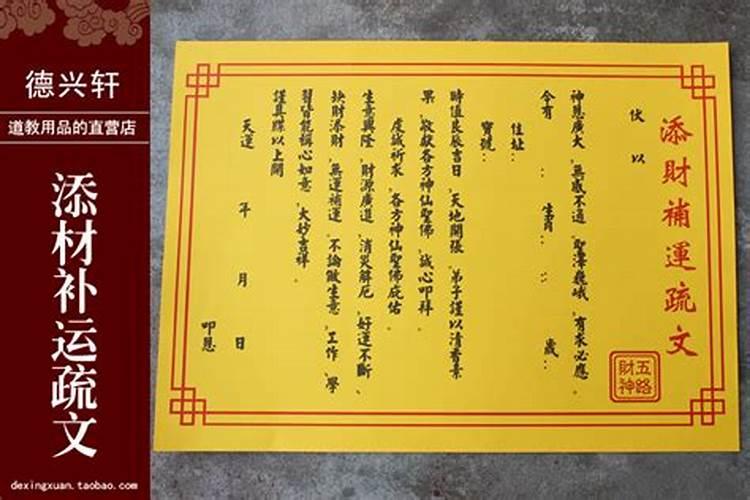 德兴轩
道教用品的直营店
添材补运疏文
dexingxuan.taobao.com
添財補運疏文
五路
財神
伏以
神恩廣大、無感不通、聖澤巍峨、有求必應。
今有 : 生肖: : 歲:
住址:
寶號:
時值良辰吉日、天地開張、弟子謹以清香素
果、敬獻各方神仙聖佛、誠心叩拜。
虔誠祈求、各方神仙聖佛庇佑。
生意興隆、財源廣進、消災解厄、好運不斷、
缺財添財、無運補運、不論做生意、工作、學
習皆能稱心如意、大妙吉祥。
謹具牒以上聞
天運 年 月 日
叩恩